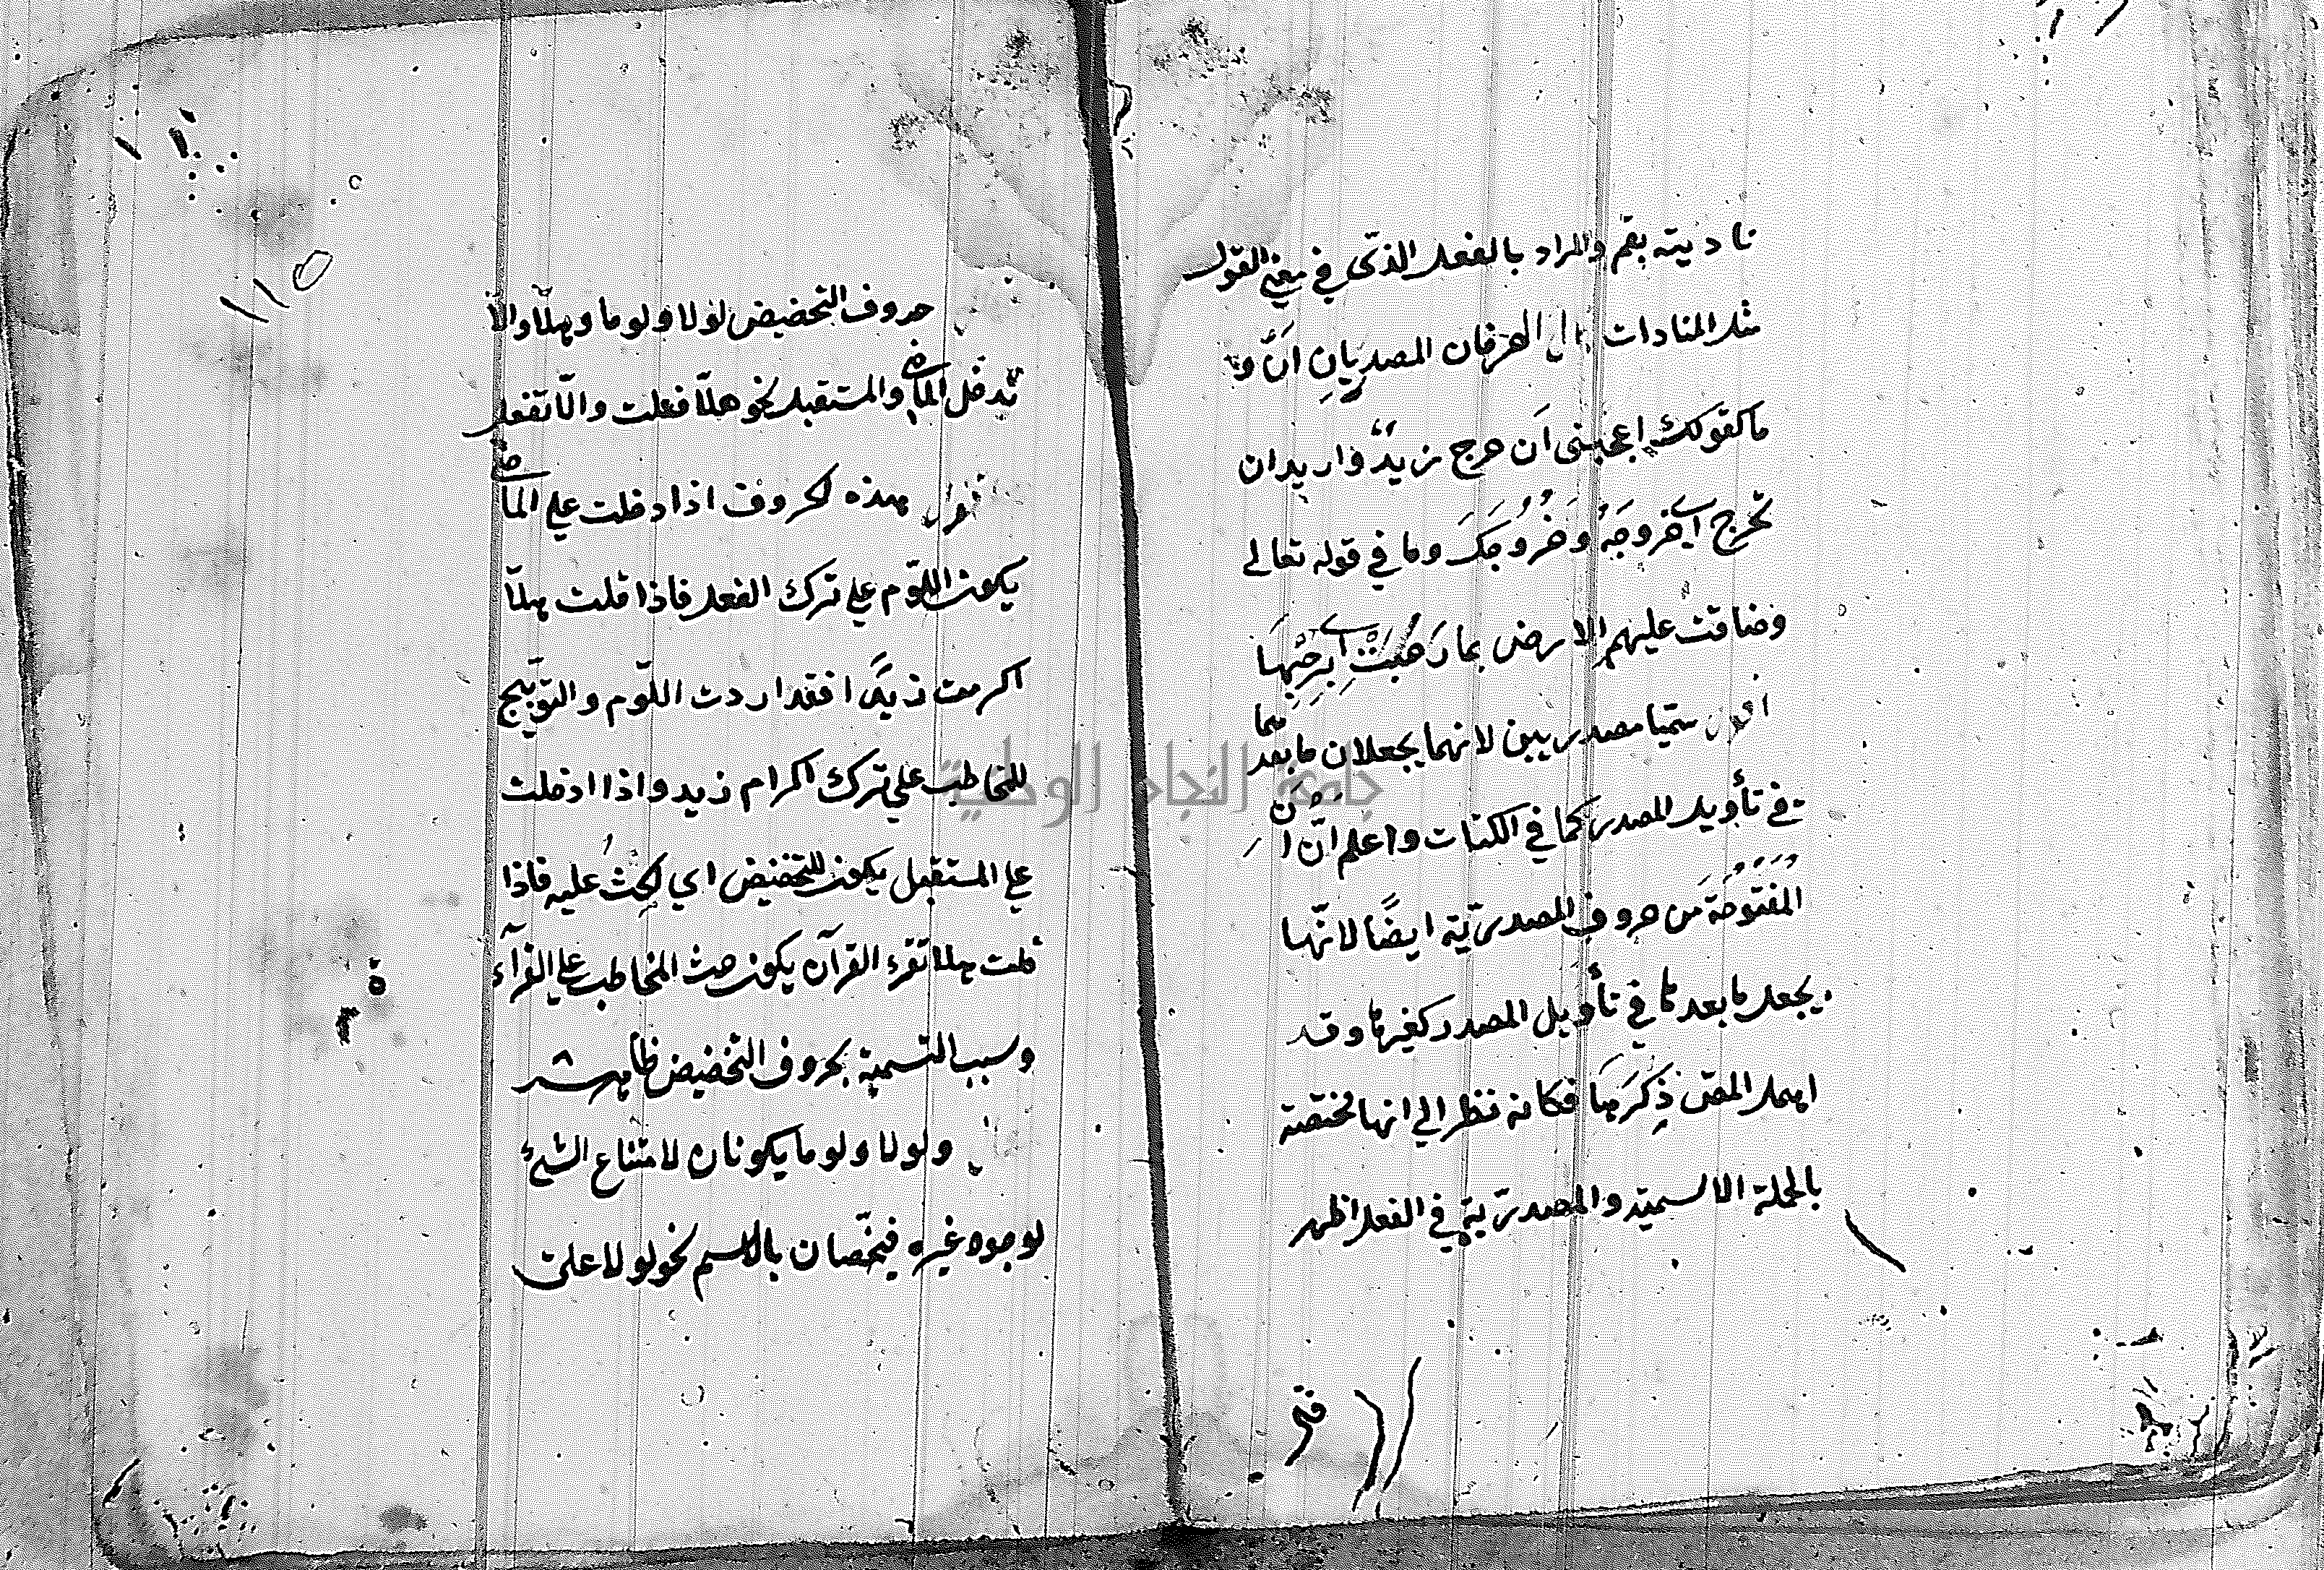 ناديته بقم والمراد بالفعل الذي في معنى القول
مثل المنادات الحرفان المصدريان ان و
ما كقولك اعجبنى ان خرج زيد واريد ان
تخرج اي خروجه وخروجك وما في قوله تعالى
وضاقت عليهم الارض بما رحبت اي برحبها
اقول سميا مصدريين لانهما يجعلان ما بعدهما
في تأويل المصدر كما في الكتاب واعلم ان ان
المفتوحة من حروف المصدرية ايضًا لانها
يجعل ما بعدها في تأويل المصدر كغيرها وقد
اهمل المص ذكرها فكانه نظر الى انها مختصة
بالجملة الاسمية والمصدرية في الفعل اظهر
١١٥
حروف التحضيض لولا ولوما وهلا والا
تدخل الماضي والمستقبل نحو هلا فعلت والا تفعل
اقول هذه الحروف اذا دخلت على الماضي
يكون اللوم على ترك الفعل فاذا قلت هلا
اكرمت زيدًا فقد اردت اللوم والتوبيخ
للمخاطب على ترك اكرام زيد واذا ادخلت
على المستقبل يكون للتحضيض اي لحث عليه فاذا
قلت هلا تقرء القرآن يكون حث المخاطب على القرآء
ة
وسبب التسمية بحروف التحضيض ظاهر
ولولا ولوما يكونان لامتناع الشيء
لوجود غيره فيختصان بالاسم نحو لولا على
جامعة النجاح الوطنية